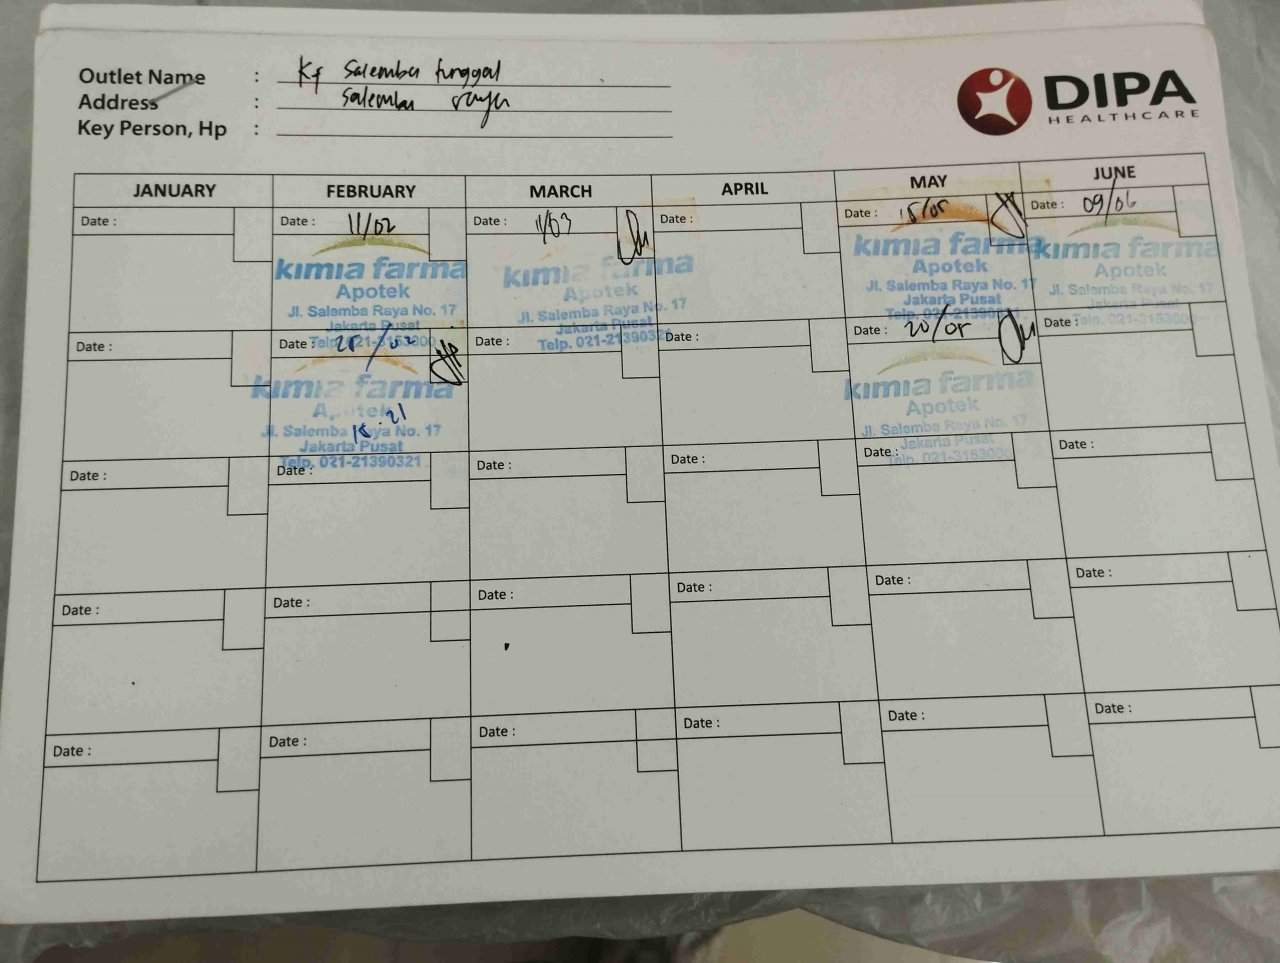 Outlet Name : Kf Salemba tunggal
Address : Salemba raya
Key Person, Hp :
DIPA
HEALTHCARE
JANUARY FEBRUARY MARCH APRIL MAY JUNE
Date : Date : 11/02 Date : 11/03 Date : Date : 15/05 Date : 09/06
kimia farma kimia farma kimia farma kimia farma
Apotek Apotek Apotek Apotek
Jl. Salemba Raya No. 17 Jl. Salemba Raya No. 17 Jl. Salemba Raya No. 17 Jl. Salemba Raya No. 17
Jakarta Pusat Jakarta Pusat Jakarta Pusat
Telp. 021-21390321
Date : Date : 25/02 Date : Date : Date : 20/05 Date :
kimia farma kimia farma
Apotek Apotek
15.21
Jl. Salemba Raya No. 17 Jl. Salemba Raya No. 17
Jakarta Pusat Jakarta Pusat
Telp. 021-21390321
Date : Date : Date : Date : Date : Date :
Date : Date : Date : Date : Date : Date :
Date : Date : Date : Date : Date : Date :